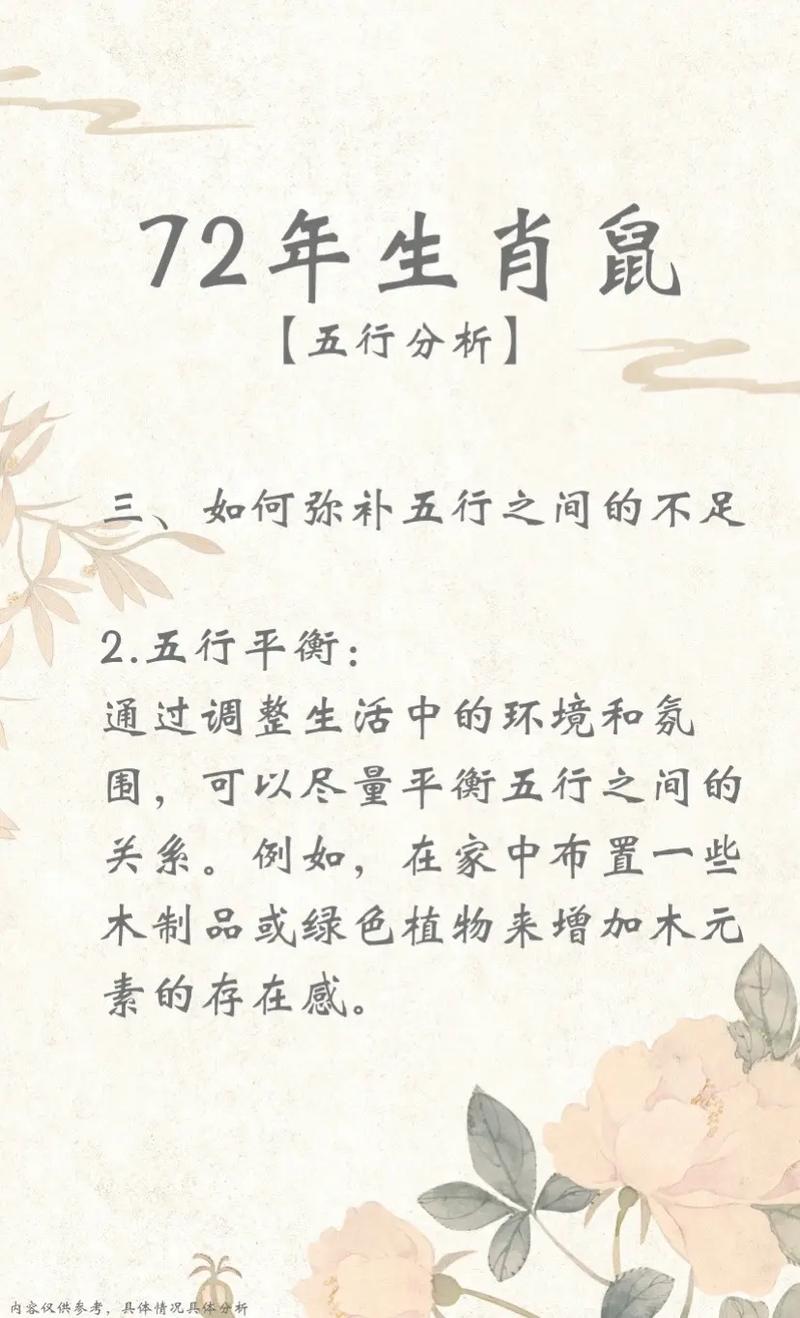 72年生肖鼠
【五行分析】
三、如何弥补五行之间的不足
2.五行平衡：
通过调整生活中的环境和氛
围，可以尽量平衡五行之间的
关系。例如，在家中布置一些
木制品或绿色植物来增加木元
素的存在感。
内容仅供参考，具体情况具体分析